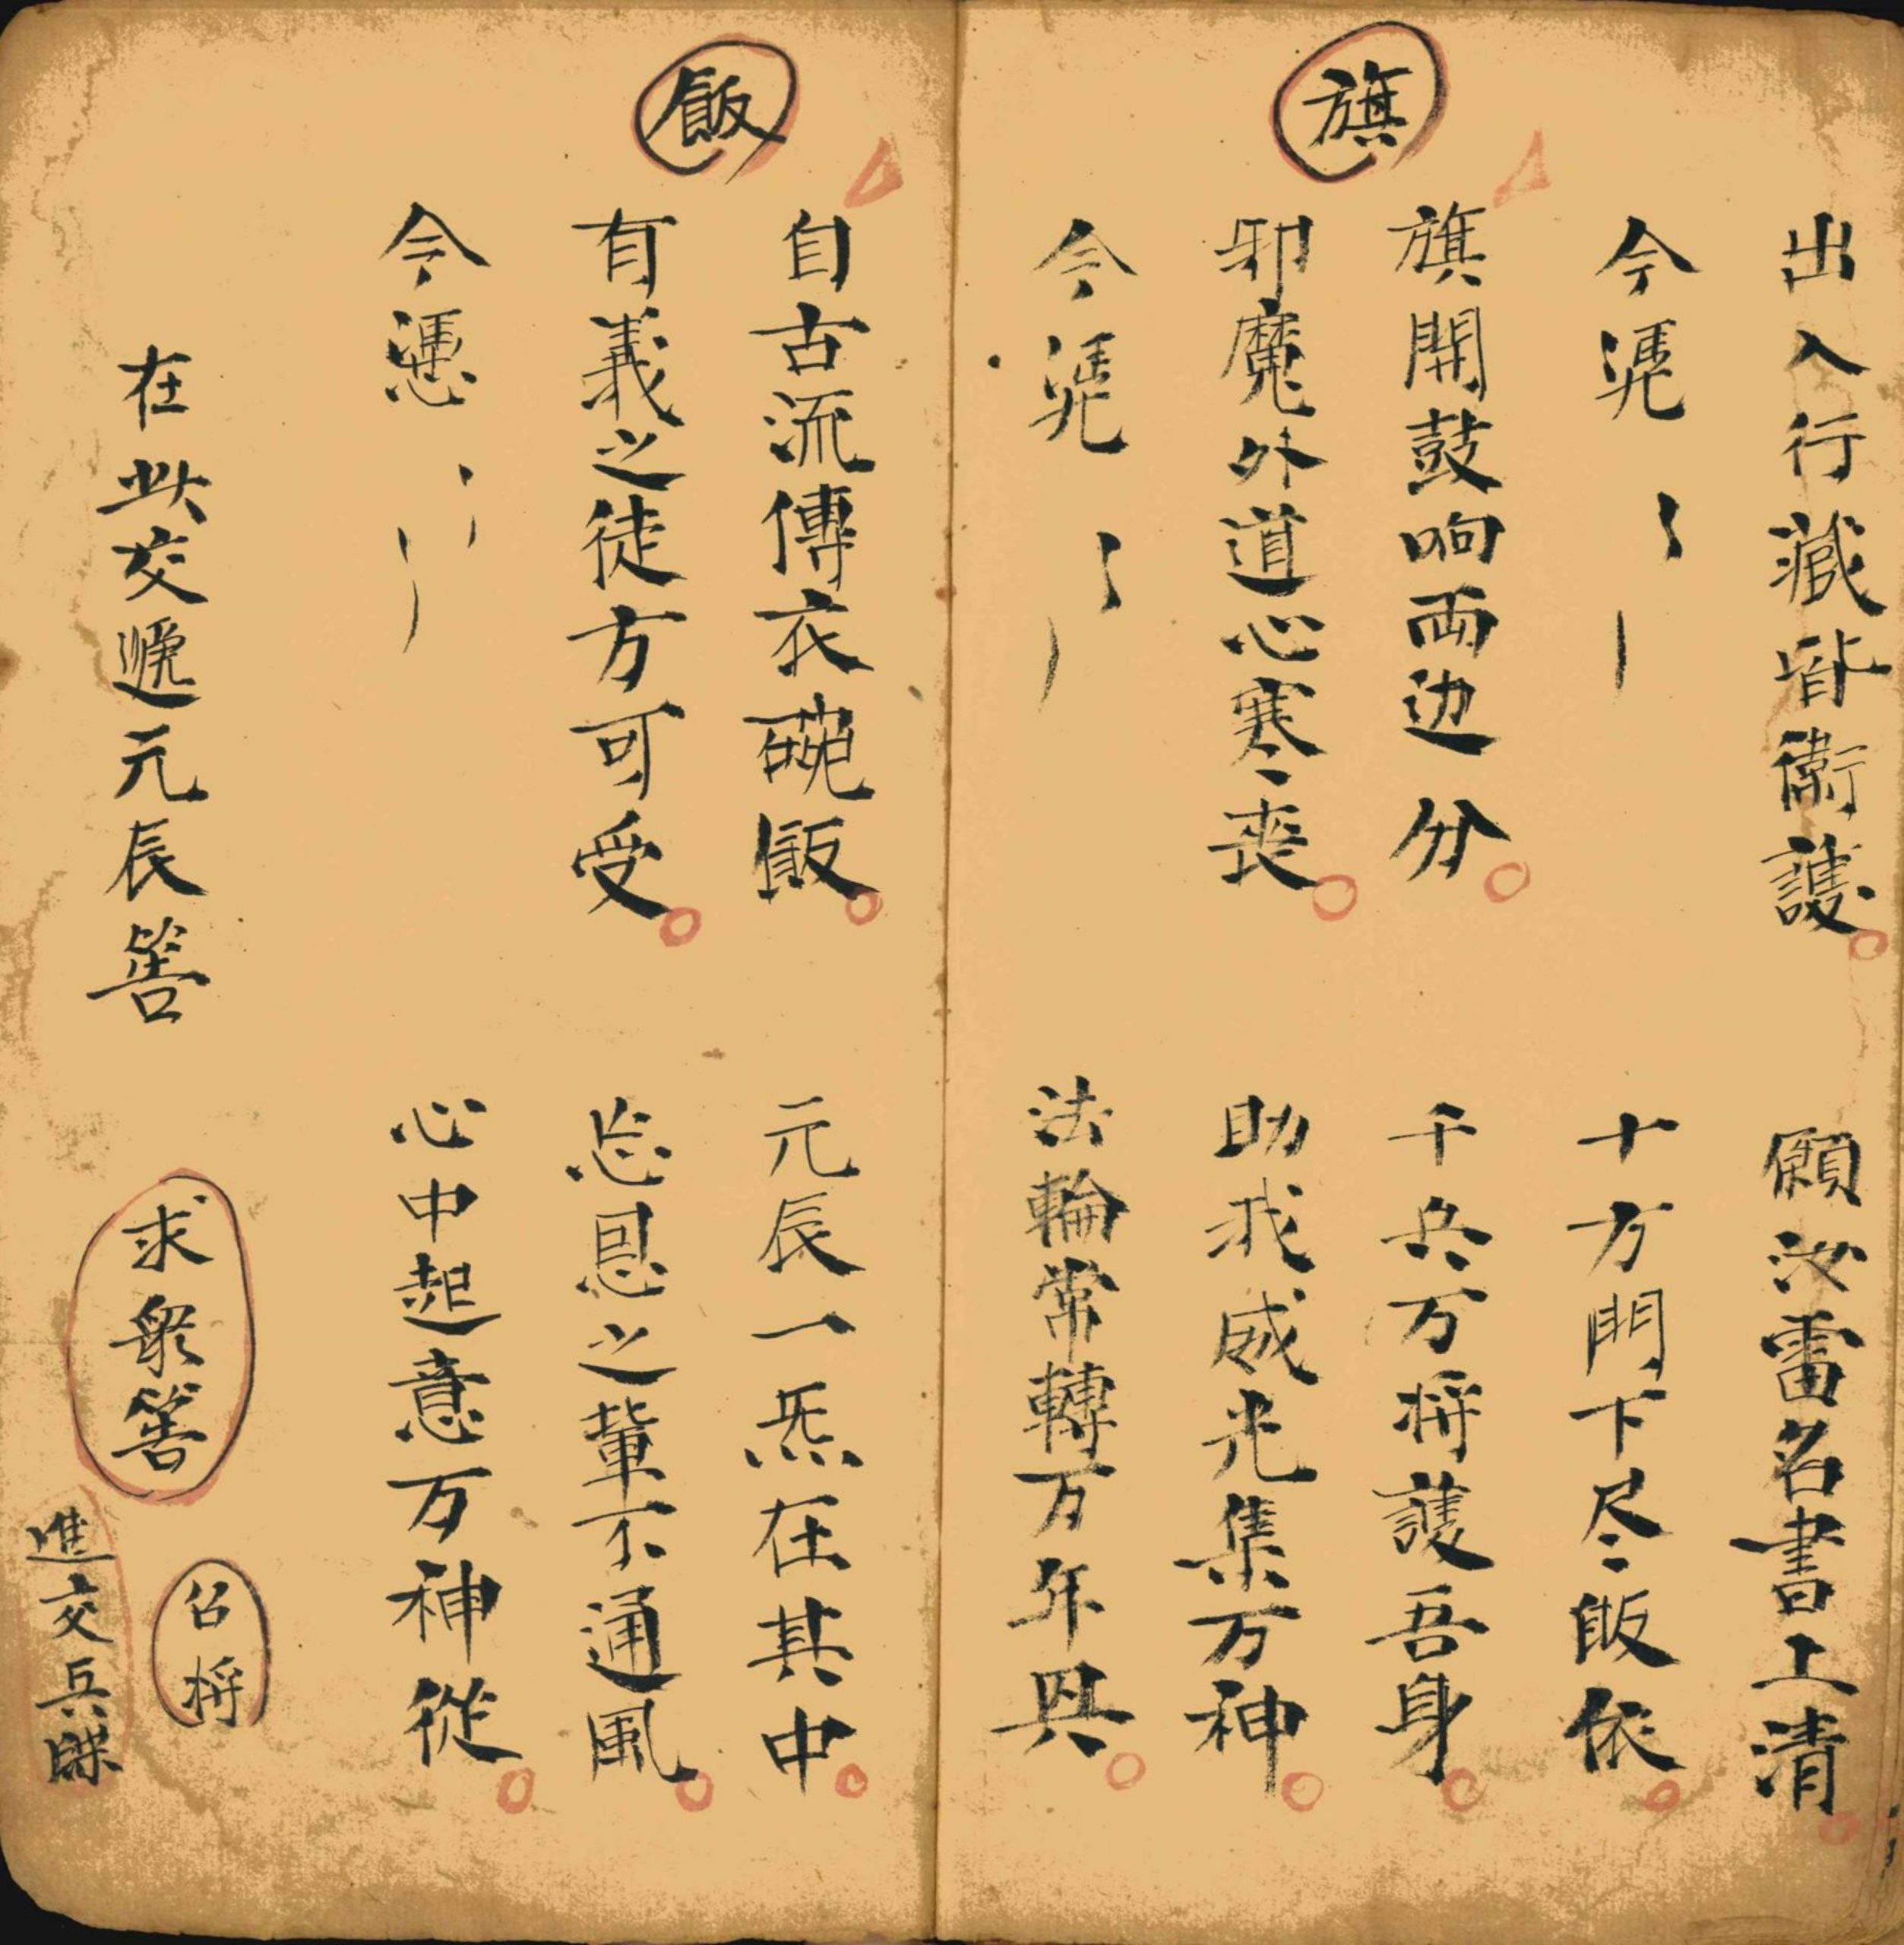 出入行藏皆衛護 願汝雷名書上清
今凴 十方門下尽皈依
旗
旗開鼓响両边分 千兵万将護吾身
邪魔外道心寒丧 助我威光集万神
今凴 法輪常轉万年興
飯
自古流傳衣碗飯 元辰一炁在其中
有義之徒方可受 忘恩之輩不通風
今慿 心中起意万神從
在此交遞元辰筶 求衆筶
召将
進交兵牒